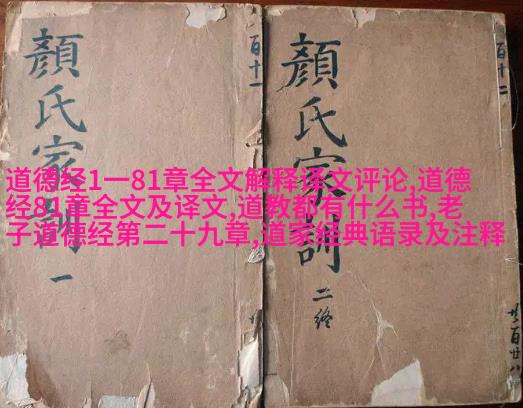 顏氏家訓
一
百十一
顏氏家訓
二終
百十二
道德经1一81章全文解释译文评论,道德
经81章全文及译文,道教都有什么书,老
子道德经第二十九章,道家经典语录及注释